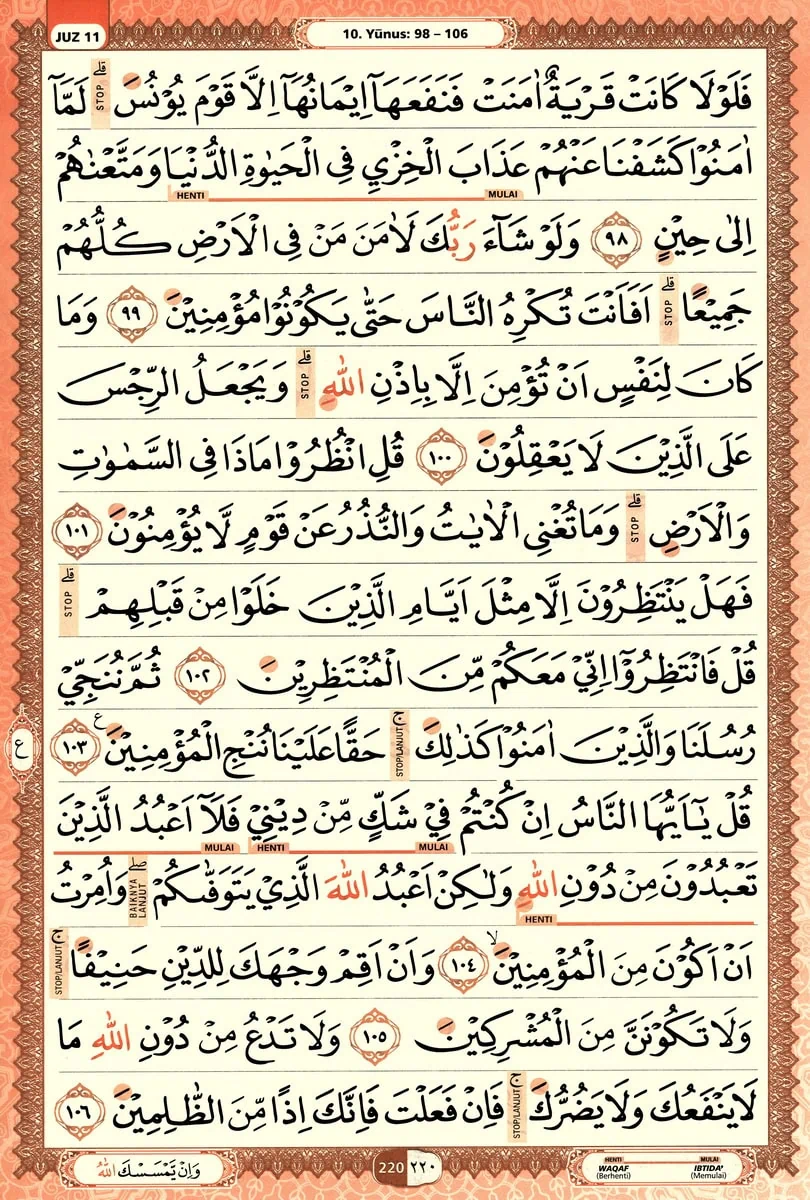 JUZ 11
10. Yūnus: 98 – 106
فَلَوْلَا كَانَتْ قَرْيَةٌ اٰمَنَتْ فَنَفَعَهَآ اِيْمَانُهَآ اِلَّا قَوْمَ يُوْنُسَۗ STOP لَمَّآ
اٰمَنُوْا كَشَفْنَا عَنْهُمْ عَذَابَ الْخِزْيِ فِى الْحَيٰوةِ الدُّنْيَا وَمَتَّعْنٰهُمْ
MULAI HENTI
اِلٰى حِيْنٍ ٩٨ وَلَوْ شَاۤءَ رَبُّكَ لَاٰمَنَ مَنْ فِى الْاَرْضِ كُلُّهُمْ
جَمِيْعًاۗ STOP اَفَاَنْتَ تُكْرِهُ النَّاسَ حَتّٰى يَكُوْنُوْا مُؤْمِنِيْنَ ٩٩ وَمَا
كَانَ لِنَفْسٍ اَنْ تُؤْمِنَ اِلَّا بِاِذْنِ اللّٰهِۗ STOP وَيَجْعَلُ الرِّجْسَ
عَلَى الَّذِيْنَ لَا يَعْقِلُوْنَ ١٠٠ قُلِ انْظُرُوْا مَاذَا فِى السَّمٰوٰتِ
وَالْاَرْضِۗ STOP وَمَا تُغْنِى الْاٰيٰتُ وَالنُّذُرُ عَنْ قَوْمٍ لَّا يُؤْمِنُوْنَ ١٠١
فَهَلْ يَنْتَظِرُوْنَ اِلَّا مِثْلَ اَيَّامِ الَّذِيْنَ خَلَوْا مِنْ قَبْلِهِمْۗ STOP
قُلْ فَانْتَظِرُوْٓا اِنِّيْ مَعَكُمْ مِّنَ الْمُنْتَظِرِيْنَ ١٠٢ ثُمَّ نُنَجِّيْ
رُسُلَنَا وَالَّذِيْنَ اٰمَنُوْا كَذٰلِكَۚ STOP/LANJUT حَقًّا عَلَيْنَا نُنْجِ الْمُؤْمِنِيْنَ ع ١٠٣
ع
قُلْ يٰٓاَيُّهَا النَّاسُ اِنْ كُنْتُمْ فِيْ شَكٍّ مِّنْ دِيْنِيْ فَلَآ اَعْبُدُ الَّذِيْنَ
MULAI HENTI MULAI
تَعْبُدُوْنَ مِنْ دُوْنِ اللّٰهِ وَلٰكِنْ اَعْبُدُ اللّٰهَ الَّذِيْ يَتَوَفّٰىكُمْۖ BAIKNYA LANJUT وَاُمِرْتُ
HENTI
اَنْ اَكُوْنَ مِنَ الْمُؤْمِنِيْنَۙ ١٠٤ وَاَنْ اَقِمْ وَجْهَكَ لِلدِّيْنِ حَنِيْفًاۚ STOP/LANJUT
وَلَا تَكُوْنَنَّ مِنَ الْمُشْرِكِيْنَ ١٠٥ وَلَا تَدْعُ مِنْ دُوْنِ اللّٰهِ مَا
لَا يَنْفَعُكَ وَلَا يَضُرُّكَۚ STOP/LANJUT فَاِنْ فَعَلْتَ فَاِنَّكَ اِذًا مِّنَ الظّٰلِمِيْنَ ١٠٦
وَاِنْ يَّمْسَسْكَ اللّٰهُ
220 ٢٢٠
HENTI MULAI
WAQAF IBTIDA'
(Berhenti) (Memulai)